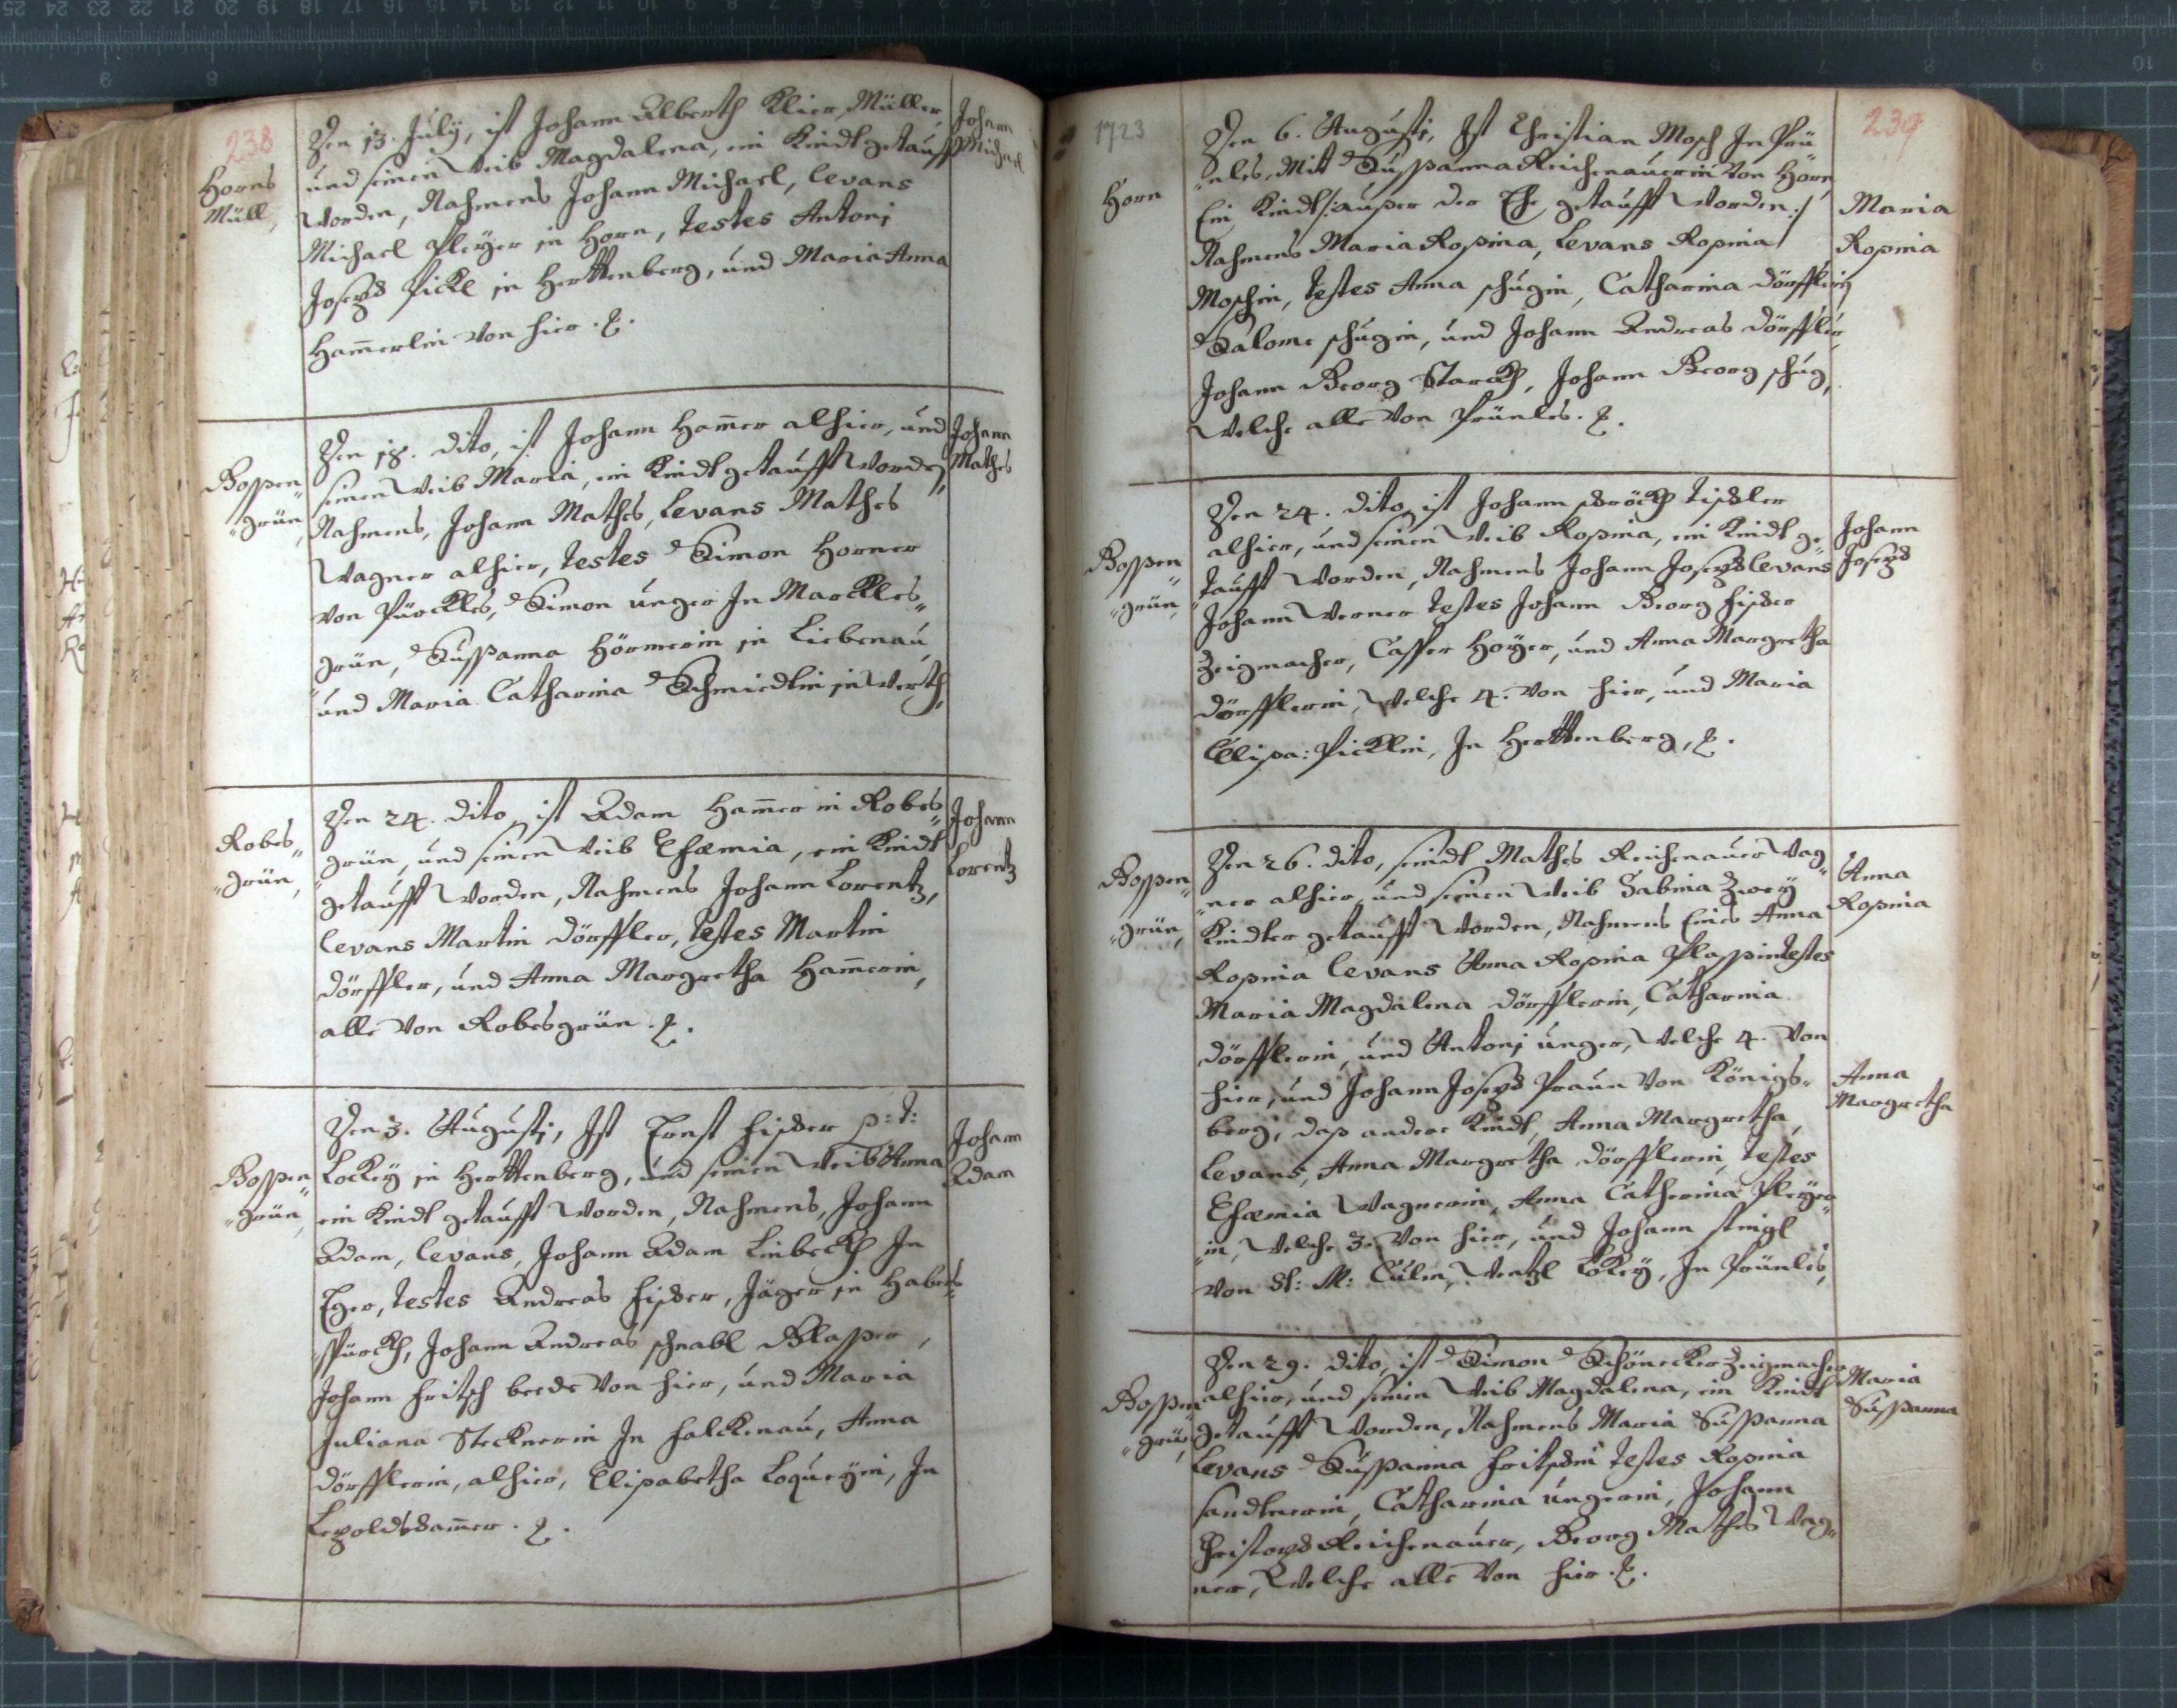 238
Horns
Müll,
Den 13. July, ist Johann Alberth Klier, Müller,
und seinen Weib Magdalena, ein Kindt getaufft
Worden, Nahmens Johann Michael, Levans
Michael Pleÿer in Horn, Testes Antonj
Joseph Pickl in Hertenberg, und Maria Anna
Ham̄erlin von hier.
Johann
Michael
Bossen„
„grün,
Den 18. dito, ist Johann Ham̄er alhier, und
seinen Weib Maria, ein Kindt getaufft Worden,
Nahmens, Johann Mathes, Levans Mathes
Wagner alhier, Testes Simon Horner
von Pürckles, Simon Unger In Marckles„
grün, Sussanna Hörmerin in Liebenau,
und Maria Catharina Schmiedlin in Werth,
Johann
Mathes
Robes„
„grün,
Den 24. dito, ist Adam Ham̄er in Robes„
„grün, und seinen Weib Efæmia, ein Kindt
getaufft Worden, Nahmens Johann Lorentz,
Levans Martin Dörffler, Testes Martin
Dörffler, und Anna Margretha Ham̄erin,
alle Von Robesgrün.
Johann
Lorentz
Bossen„
„grün,
Den 3. Augustj, Ist Ernst Fischer p: t:
Lockeÿ in Hertenberg, und seinen Weib Anna
ein Kindt getaufft Worden, Nahmens, Johann
Adam, Levans, Johann Adam Linbeckh In
Eger, Testes Andreas Fischer, Jäger in Habers„
„spürckh, Johann Andreas Schnabl Blasser,
Johann Fritsch beede Von hier, und Maria
Juliana Stecknerin In Falckenau, Anna
Dörfflerin, alhier, Elisabetha Loqueÿin, In
Lepoldsham̄er.
Johann
Adam
1723
239
Horn
Den 6. Augustj, Ist Christian Mosch In Prü
„nles, Mit Sussanna Reichenauerin Von Horn,
Ein Kindt /: ausser der Ehe getaufft Worden :/
Nahmens Maria Rosina, Levans Rosina
Moschin, Testes Anna Schugin, Catharina Dörfflerin,
Salome Schugin, und Johann Andreas Dörffler,
Johann Georg Starckh, Johann Georg Schug,
Welche alle Von Prünles.
Maria
Rosina
Bossen„
„grün,
Den 24. dito, ist Johann Tischler
alhier, und seinen Weib Rosina, ein Kindt ge„
„taufft Worden, Nahmens Johann Joseph Levans
Johann Werner Testes Johann Georg Fischer
Zeigmacher, Casser Hoÿer, und Anna Margretha
Dörfflerin, Welche 4. Von hier, und Maria
Elisa: Picklin, In Hertenberg,
Johann
Joseph
Bossen„
„grün,
Den 26. dito, seindt Mathes Reichenauer Wag„
„ner alhier, und seinen Weib Sabina Zweÿ
Kindter getaufft Worden, Nahmens Eines Anna
Rosina Levans Anna Rosina Plassin Testes
Maria Magdalena Dörfflerin, Catharina
Dörfflerin, und Antonj Unger, Welche 4. Von
hier, und Johann Joseph Praun Von Königs„
berg, dass andere Kindt, Anna Margretha,
Levans, Anna Margretha Dörfflerin, Testes
Efæmia Wagnerin, Anna Catherina Pleÿer„
„in, Welche 3. Von hier, und Johann Stingl
Von St: M: Culm, Wentzl Lokeÿ, In Prünles,
Anna
Rosina
Anna
Margretha
Bossen„
„grün,
Den 29. dito, ist Simon Schönecker Zeigmacher
alhier, und seinen Weib Magdalena, ein Kindt
getaufft Worden, Nahmens Maria Sussanna
Levans Sussanna Fritschin Testes Rosina
Sandtnerin, Catharina Ungerin, Johann
Christoph Reichenauer, Georg Mathes Wag„
ner, Welche alle Von hier.
Maria
Sussanna